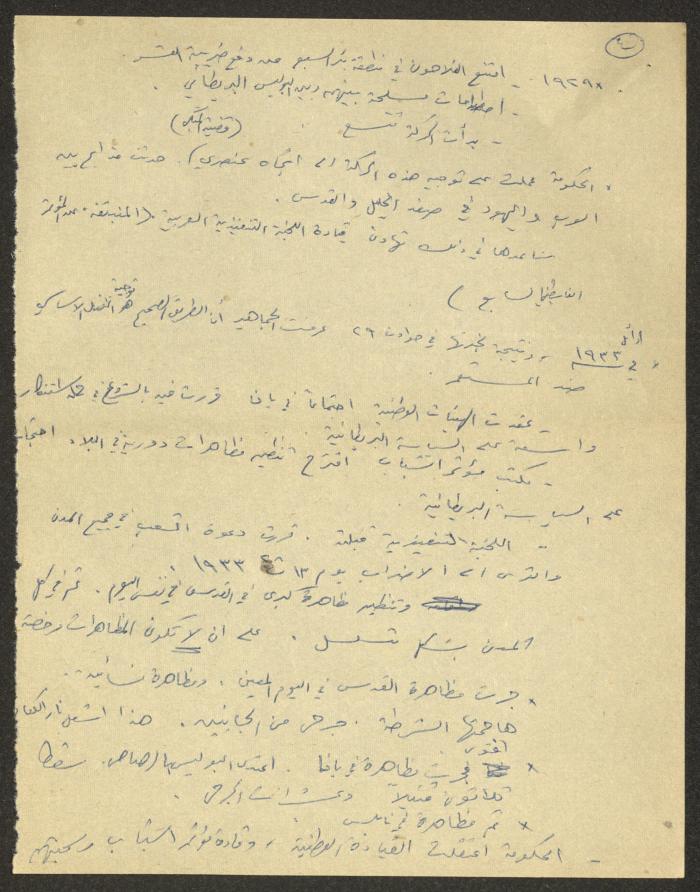 ١٩٢٩* - امتنع الفلاحون في منطقة بئر السبع عن دفع ضريبة العشر
- اصطدامات مسلحة بينهم وبين البوليس البريطاني .
- بدأت الحركة تتسع
* الحكومة عملت على توجيه هذه الحركة الى اتجاه عنصري ) . حدثت مذابح بين
العرب واليهود في صفد الخليل والقدس .
ساعدها في ذلك تهاون قيادة اللجنة التنفيذية العربية . ( المنبثقة عن المؤتمر
الفلسطيني السابع )
* في ١٩٣٣ ، ونتيجة لتجربتها في حوادث ٢٩ عرفت الجماهير أن الطريق الصحيح هو توجيه النضال الاساسي
ضد المستعمر .
- عقدت الهيئات الوطنية اجتماعاً في يافا قررت فيه بالشروع في استنكار
واسعة على السياسة البريطانية
- مكتب مؤتمر الشباب اقترح تنظيم مظاهرات دورية في البلاد احتجاجا
على السياسة البريطانية .
- اللجنة التنفيذية قبلته . قررت دعوة الشعب في جميع المدن
والقرى الى الاضراب يوم ١٣ ت ١٩٣٣
وتنظيم مظاهرة كبرى في القدس في نفس اليوم . ثم في كل
المدن بشكل تسلسل . على ان لا تكون المظاهرات مرخصة
* جرت مظاهرة القدس في اليوم المعين . ومظاهرة نسائية .
هاجمتها الشرطة . جرحى من الجانبين . هذا اشعل نار الكفاح
* فجرت مظاهرة في يافا اقوى . اعتدى البوليس بالرصاص . سقط
ثلاثون قتيلاً وعشرات الجرحى .
* ثم مظاهرة في نابلس .
- الحكومة اعتقلت القيادة الوطنية ، وقادة مؤتمر الشباب وسجنتهم